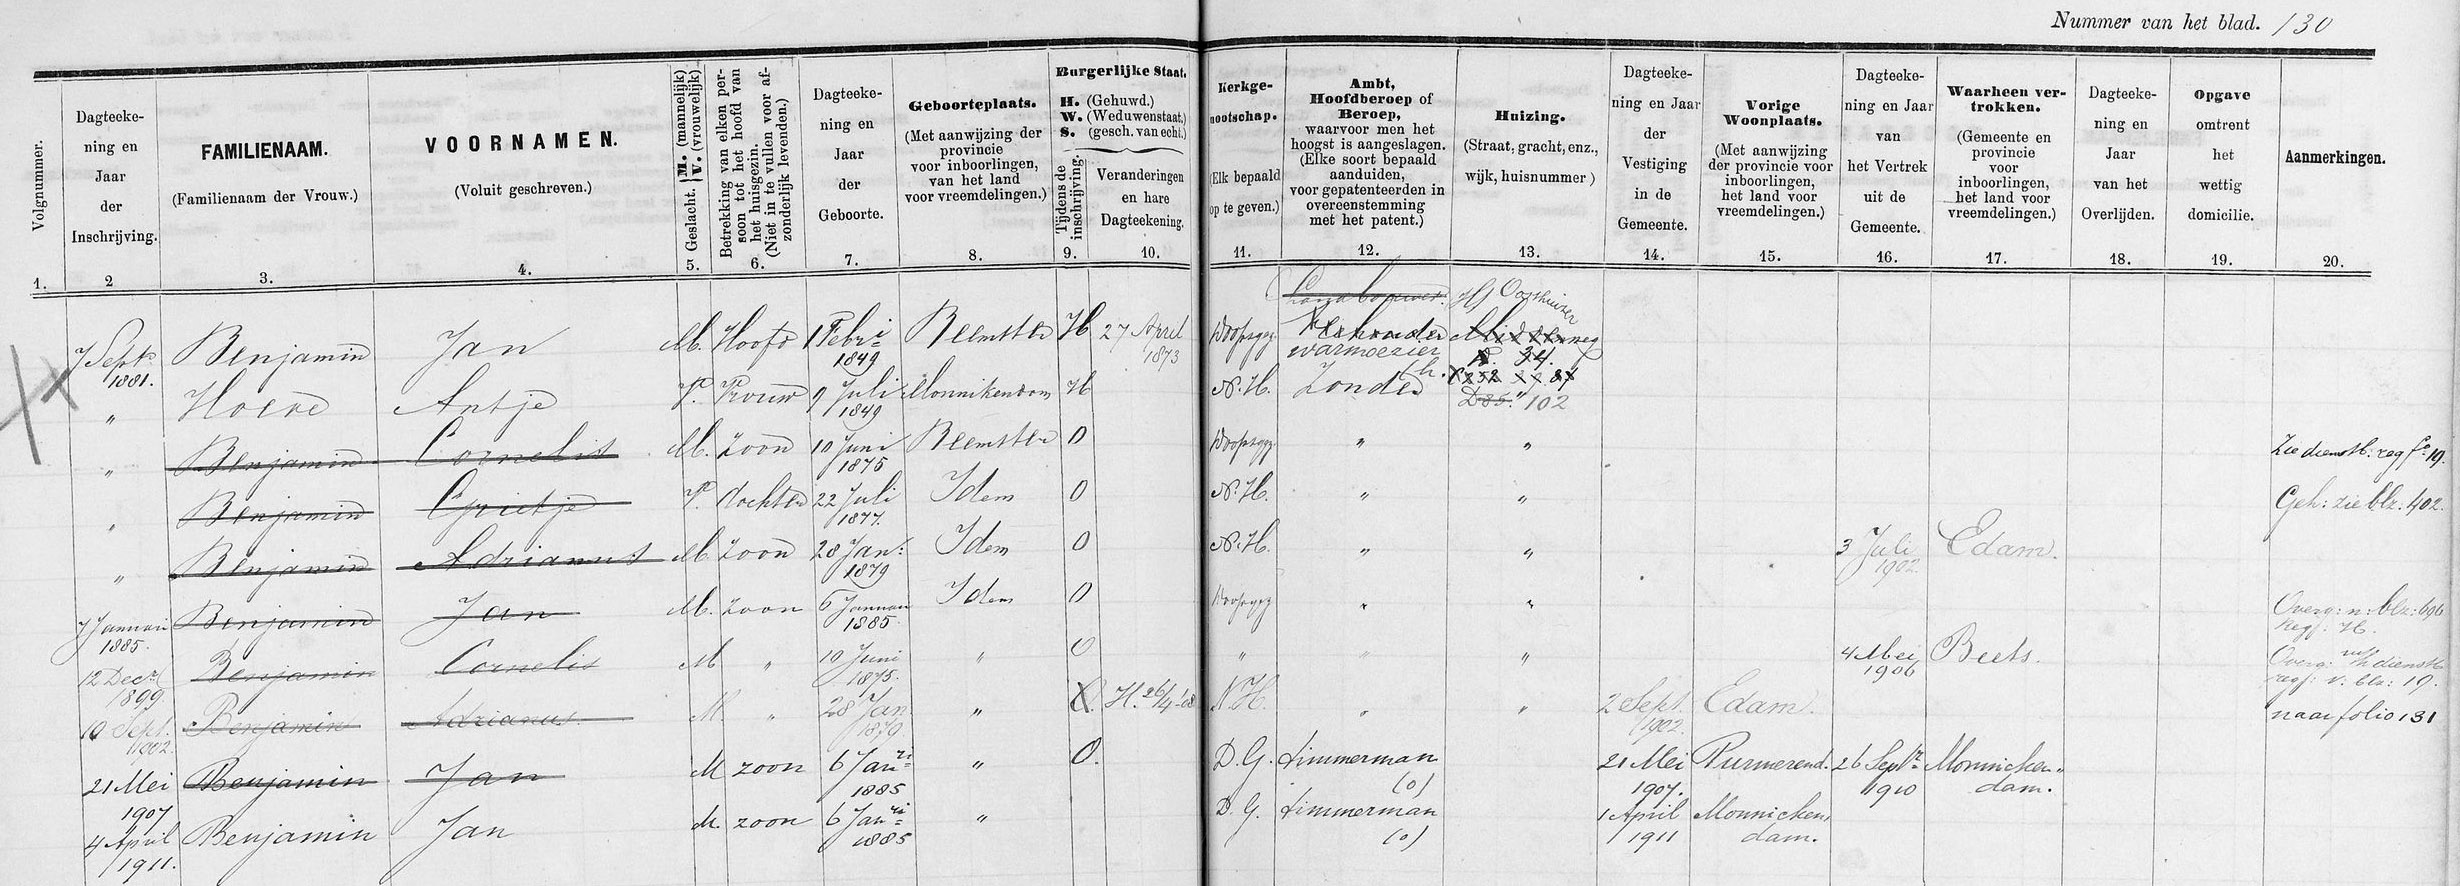 Nummer van het blad. 130
Volgnummer.
Dagteeke-
ning en
Jaar
der
Inschrijving.
FAMILIENAAM.
(Familienaam der Vrouw.)
VOORNAMEN.
(Voluit geschreven.)
Geslacht. M. (mannelijk) V. (vrouwelijk)
Betrekking van elken per-
soon tot het hoofd van
het huisgezin.
(Niet in te vullen voor af-
zonderlijk levenden.)
Dagteeke-
ning en
Jaar
der
Geboorte.
Geboorteplaats.
(Met aanwijzing der
provincie
voor inboorlingen,
van het land
voor vreemdelingen.)
Burgerlijke Staat.
H. (Gehuwd.)
W. (Weduwenstaat.)
S. (gesch. van echt.)
Tijdens de
inschrijving.
Veranderingen
en hare
Dagteekening.
Kerkge-
nootschap.
(Elk bepaald
op te geven.)
Ambt,
Hoofdberoep of
Beroep,
waarvoor men het
hoogst is aangeslagen.
(Elke soort bepaald
aanduiden,
voor gepatenteerden in
overeenstemming
met het patent.)
Huizing.
(Straat, gracht, enz.,
wijk, huisnummer)
Dagteeke-
ning en Jaar
der
Vestiging
in de
Gemeente.
Vorige
Woonplaats.
(Met aanwijzing
der provincie voor
inboorlingen,
het land voor
vreemdelingen.)
Dagteeke-
ning en Jaar
van
het Vertrek
uit de
Gemeente.
Waarheen ver-
trokken.
(Gemeente en
provincie
voor
inboorlingen,
het land voor
vreemdelingen.)
Dagteeke-
ning en
Jaar
van het
Overlijden.
Opgave
omtrent
het
wettig
domicilie.
Aanmerkingen.
1. 2 3. 4. 5. 6. 7. 8. 9. 10. 11. 12. 13. 14. 15. 16. 17. 18. 19. 20.
Landbouwer. Oosthuizer
7 Sept. Benjamin Jan M. Hoofd 1 Febri Beemster H 27 April Doopsgez. Middenweg
1881. 1849 1873 warmoezier 34.
" Hoeve Antje V. Vrouw 9 Juli Monnikendam H N. H. Zonder
1849 D 85. " 102
" Benjamin Cornelis M. Zoon 10 Juni Beemster O Doopsgez. " " Zie dienstb. reg fo. 19.
1875
" Benjamin Grietje V. dochter 22 Juli Idem O N. H. " " Geh: zie blz. 402.
1877.
" Benjamin Adrianus M. Zoon 28 Jan: Idem O N. H. " " 3 Juli Edam.
1879 1902
7 Januari Benjamin Jan M. Zoon 6 Januari Idem O Doopsgez " " Overg: n: blz: 696
1885. 1885. Reg. H.
12 Decr. Benjamin Cornelis M " 10 Juni " O " " " 4 Mei Beets. Overg: uit h dienstb
1899 1875. 1906 reg: v. blz: 19.
10 Sept. Benjamin Adrianus. M. " 28 Jan " O. H. 26/4-'08 N. H. " " 2 Sept. Edam. naar folio 131
1902. 1879. 1902.
21 Mei Benjamin Jan M zoon 6 Janri " O. D. G. timmerman 21 Mei Purmerend. 26 Septr Monnicken-
1907 1885 (o) 1907. 1910 dam.
4 April Benjamin Jan M. zoon 6 Janri " D. G. timmerman 1 April Monnicken,
1911. 1885 (o) 1911 dam.